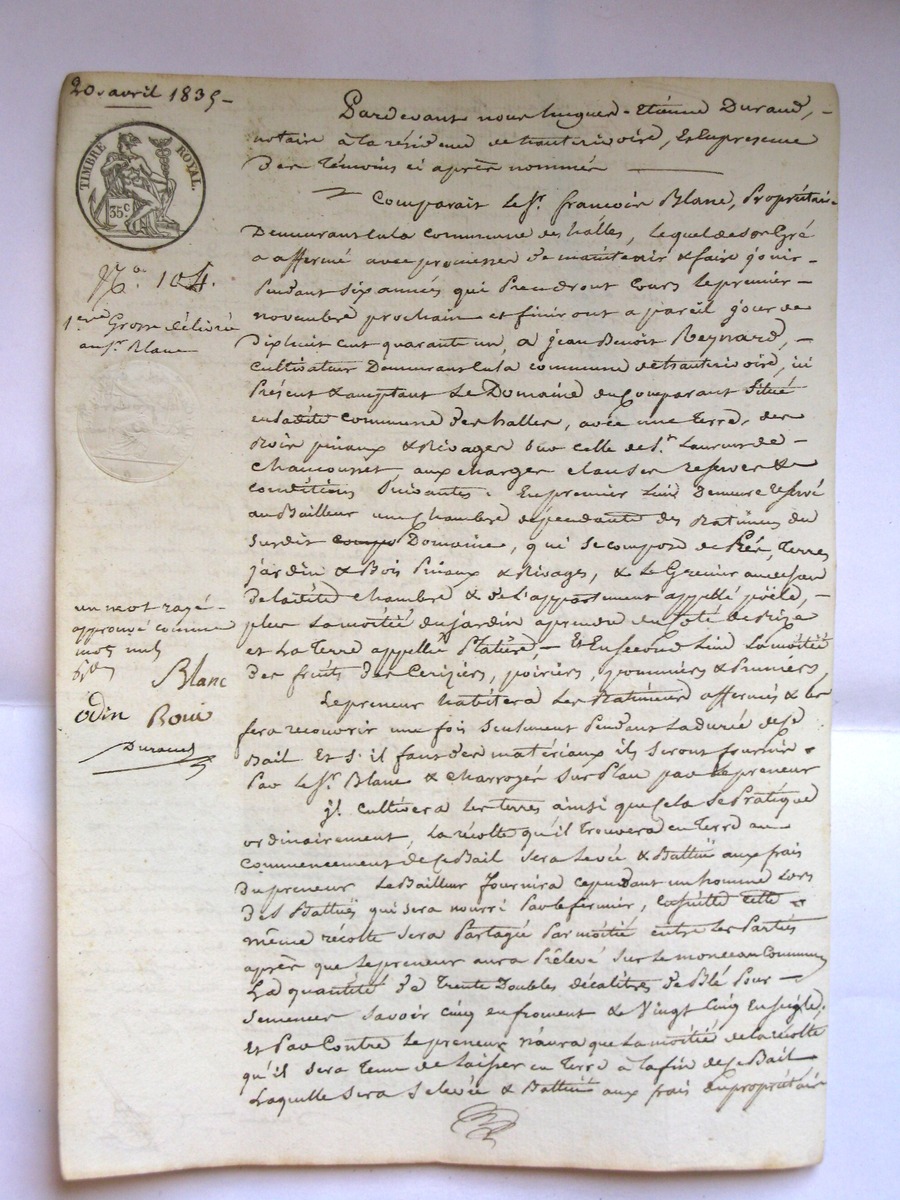 20 avril 1835 -
TIMBRE ROYAL.
35 c
N.o 104.
1ere Grosse délivrée
au Sr. Blanc
un mot rayé
approuvé comme
mot nul
Blanc
odin Boui
Durand
Pardevant nous hugues-Etienne Durand, -
notaire à la résidence de hauterivoire, & En presence
Des Témoins ci après nommés
Comparait le Sr. francois Blanc, Propriétai-
Demeurant en la commune des halles, lequel de son Gré
a affermé avec promesse de maintenir & faire jouir -
Pendant six années qui Prendront cours le premier -
novembre prochain et finiront a pareil jour de
Dixhuit cent quarante un, a jean Benoit Reynard, -
cultivateur Demeurant en la commune de hauterivoire, ici
Présent & acceptant Le Domaine du Comparant Situé
en ladite Commune des halles, avec une Terre, des
Bois pinaux & Rivages Sur celle de St. Laurent de -
Chamousset aux charges clauses reserves &
conditions Suivantes. En premier Lieu Demeure reservé
au Bailleur une Chambre dépendante des Batimens du
Susdit compo Domaine, qui se compose de Prés, Terres
jardin & Bois Pinaux & Rivages, & le Grenier au dessus
De ladite Chambre & de l'appartement appellé poële, -
plus La moitié du jardin aprendre du coté de bize
et La Terre appellée Plature, - Et En second Lieu La moitié
Des fruits des Cerisiers, poiriers, pommiers & Pruniers
Le preneur habitera Les Batimens affermés & les
fera recouvrir une fois Seulement Pendant La durée de ce
Bail Et S'il faut des matériaux ils Seront fournis
Par le Sr. Blanc & charroyés Sur Place par le preneur
jl cultivera Les terres ainsi que cela se Pratique
ordinairement, La récolte qu'il trouvera en Terre au
commencement de ce Bail Sera Levée & Battue aux frais
Du preneur Le Bailleur fournira cependant un homme Lors
Des Battues qui sera nourri Par le fermier, Ensuite cette
même récolte Sera Partagée Par moitié entre les Parties
après que Le preneur aura Prélevé Sur le monceau Commun
La quantité de Trente Doubles décalitres de Blé Pour -
Semences Savoir cinq en froment & Vingt cinq En seigle,
Et Par Contre Le preneur n'aura que La moitié de la récolte
qu'il sera Tenu de Laisser en Terre à La fin de ce Bail
Laquelle Sera Levée & Battue aux frais du propriétaire